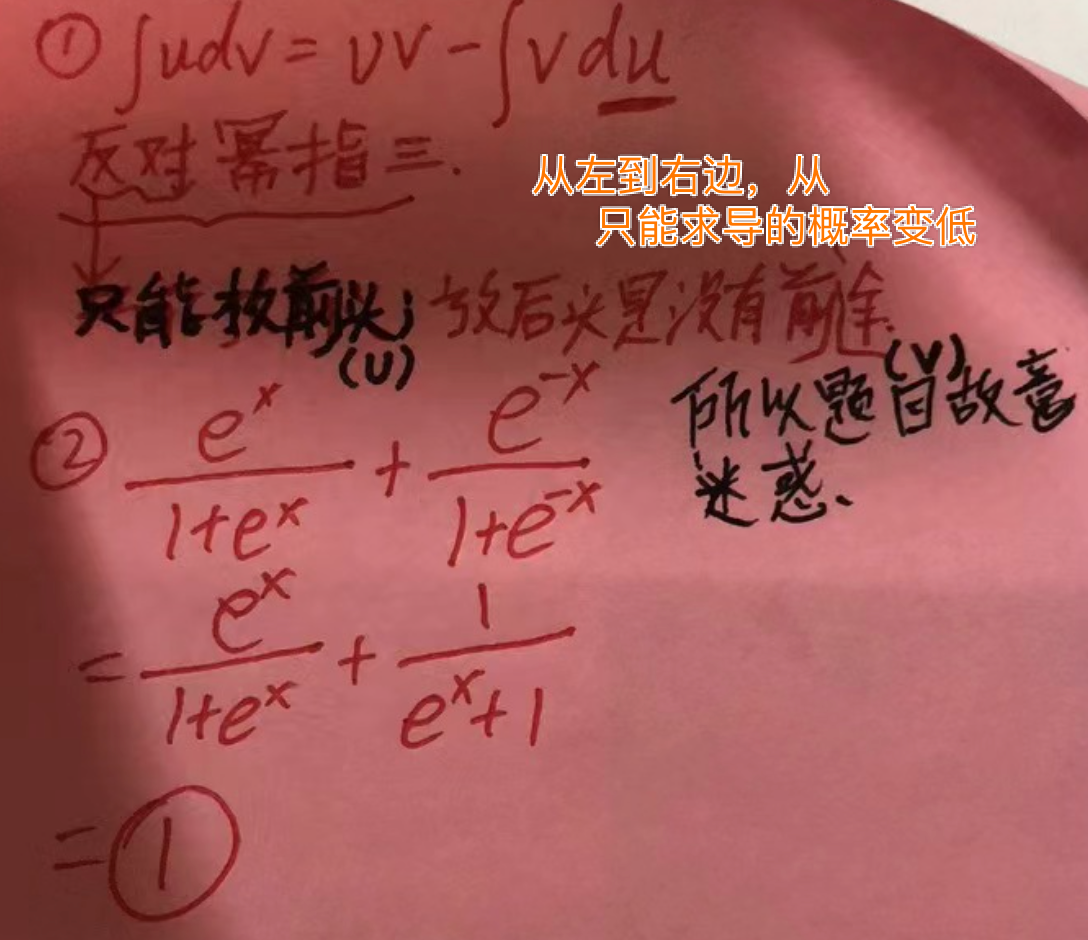 ① ∫udv = uv - ∫vdu
反对幂指三.
从左到右边，从
只能求导的概率变低
只能放前头; 放后头是没有前途.
(U)
(V)
所以题目故意
迷惑.
② e^x/(1+e^x) + e^-x/(1+e^-x)
= e^x/(1+e^x) + 1/(e^x+1)
= ①